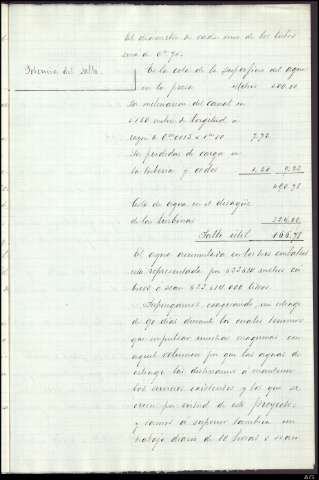 El diametro de cada uno de los tubos
sera de 0m 90.
Potencia del salto.
Es la cota de la superficie del agua
en la presa metros 500.00
La inclinacion del canal en
5180 metros de longitud a
razon de 0m0015 x 1m00 7.72
Las perdidas de carga en
la tuberia y codos 1,50 9.22
490.78
Cota de agua en el desagüe
de las turbinas
Salto util 166.78
El agua acumulada en los tres embalses
esta representada por 633634 metros cu
bicos o sean 633.634.000 litros.
Supongamos, exagerando, un estiage
de 90 dias durante los cuales tenemos
que impulsar nuestras maquinas con
aquel volumen por que las aguas de
estiage las destinamos a mantener
los servicios existentes y los que se
creen por virtud de este proyecto,
y vamos a suponer tambien un
trabajo diario de 10 horas o sean